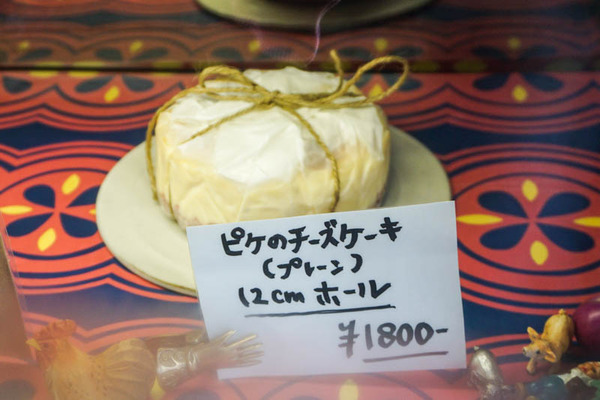 ピケのチーズケーキ
(プレーン)
12cm ホール
¥1800-